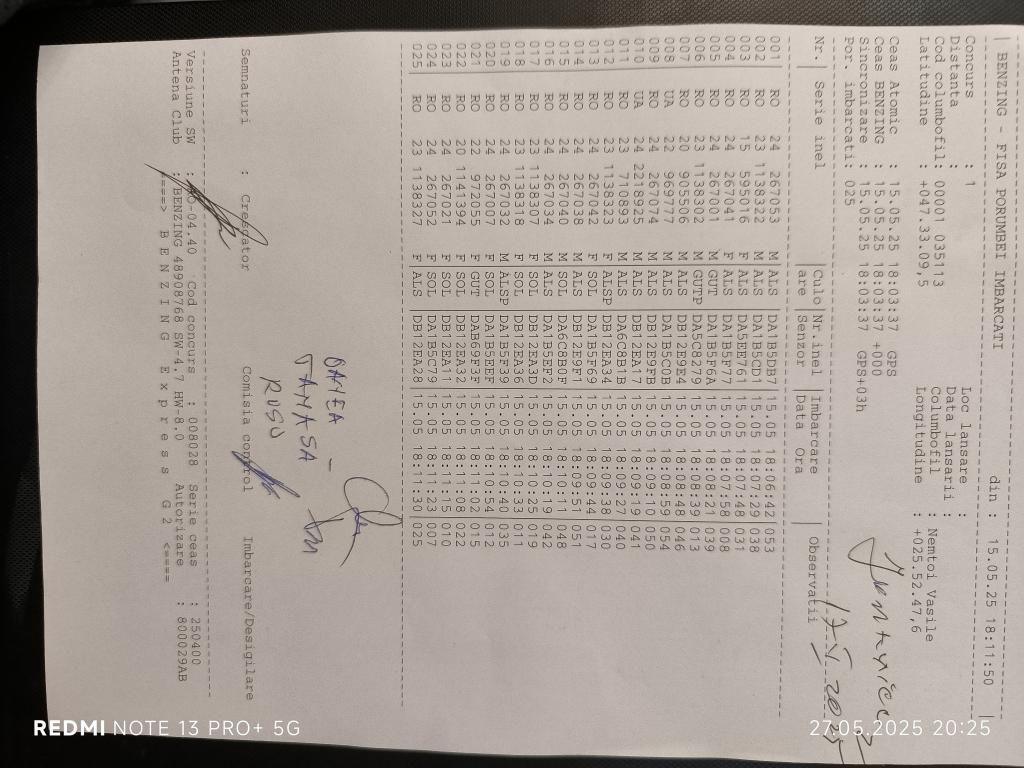 | BENZING - FISA PORUMBEI IMBARCATI din : 15.05.25 18:11:50 |
Concurs : 1 Loc lansare :
Distanta : Data lansarii :
Cod columbofil: 00001 035113 Columbofil : Nemtoi Vasile
Latitudine : +047.33.09,5 Longitudine : +025.52.47,6
Ceas Atomic : 15.05.25 18:03:37 GPS
Ceas BENZING : 15.05.25 18:03:37 +000
Sincronizare : 15.05.25 18:03:37 GPS+03h
Por. imbarcati: 025
17.V.2025
Nr. | Serie inel Culo|Nr.inel |Imbarcare |Observatii
are |Senzor |Data Ora
001 RO 24 267053 M ALS |DA1B5DB7|15.05 18:06:42|053
002 RO 23 1138322 M ALS |DA1B5CD1|15.05 18:07:29|038
003 RO 15 595016 F ALS |DA5EE761|15.05 18:07:48|031
004 RO 24 267041 F ALS |DA1B5F77|15.05 18:07:58|008
005 RO 24 267001 M GUT |DA1B5F6A|15.05 18:08:21|039
006 RO 23 1138302 M GUTP|DA5C8279|15.05 18:08:39|013
007 RO 20 905506 M ALS |DB12E9E4|15.05 18:08:48|046
008 UA 22 965777 M ALS |DA1B5C0B|15.05 18:08:59|054
009 RO 24 267074 M ALS |DB12E9FB|15.05 18:09:10|050
010 UA 24 2218925 M ALS |DB12EA17|15.05 18:09:19|041
011 RO 23 710893 M ALS |DA6C8B1B|15.05 18:09:27|040
012 RO 23 1138323 F ALSP|DB12EA34|15.05 18:09:38|030
013 RO 24 267042 F SOL |DA1B5F69|15.05 18:09:44|017
014 RO 24 267038 M ALS |DB12E9F1|15.05 18:09:51|051
015 RO 24 267040 M SOL |DA6C8B0F|15.05 18:10:11|048
016 RO 24 267034 M ALS |DA1B5EF2|15.05 18:10:19|042
017 RO 23 1138307 F SOL |DB12EA3D|15.05 18:10:25|019
018 RO 23 1138318 F SOL |DB12EA39|15.05 18:10:33|011
019 RO 24 267032 M ALSP|DA1B5F39|15.05 18:10:40|035
020 RO 24 267007 F SOL |DA1B5EEF|15.05 18:10:54|012
021 RO 24 972055 F GUT |DAB69F3F|15.05 18:11:02|015
022 RO 20 1141394 F SOL |DB12EA32|15.05 18:11:08|022
023 RO 24 267021 F ALS |DB12EA11|15.05 18:11:15|010
024 RO 24 267022 F SOL |DA1B5C79|15.05 18:11:23|007
025 RO 23 1138327 F ALS |DB12EA28|15.05 18:11:30|025
TAMASA
RUSU
Semnaturi : Crescator Comisia control Imbarcare/Desigilare
Versiune SW : -04.40 Cod concurs : 008028 Serie ceas : 250400
Antena Club : BENZING 48908768 SW-4.7 HW-8.0 Autorizare : 800029AB
====> B E N Z I N G E x p r e s s G 2 <====
REDMI NOTE 13 PRO+ 5G
27.05.2025 20:25